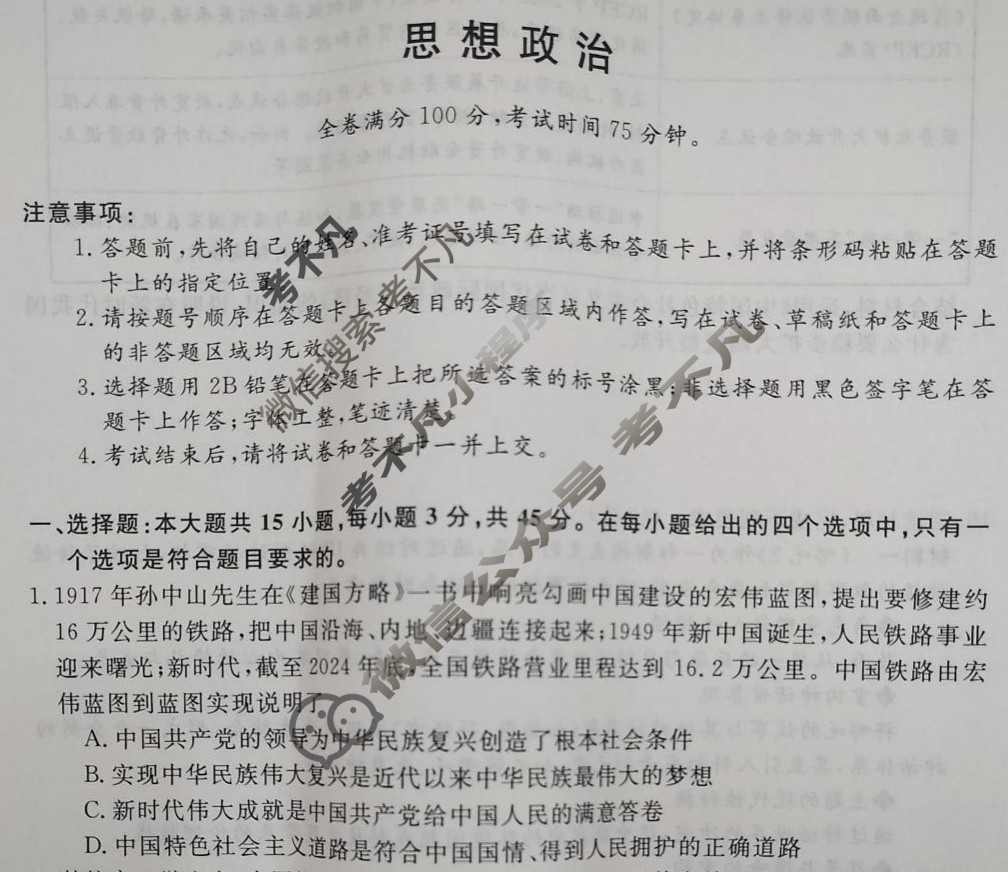 思想政治
全卷满分100分,考试时间75分钟。
注意事项:
1. 答题前,先将自己的姓名、准考证号填写在试卷和答题卡上,并将条形码粘贴在答题
卡上的指定位置。
2. 请按题号顺序在答题卡上各题目的答题区域内作答,写在试卷、草稿纸和答题卡上
的非答题区域均无效。
3. 选择题用2B铅笔在答题卡上把所选答案的标号涂黑;非选择题用黑色签字笔在答
题卡上作答;字体工整,笔迹清楚。
4. 考试结束后,请将试卷和答题卡一并上交。
一、选择题:本大题共15小题,每小题3分,共45分。在每小题给出的四个选项中,只有一
个选项是符合题目要求的。
1. 1917年孙中山先生在《建国方略》一书中响亮勾画中国建设的宏伟蓝图,提出要修建约
16万公里的铁路,把中国沿海、内地、边疆连接起来;1949年新中国诞生,人民铁路事业
迎来曙光;新时代,截至2024年底,全国铁路营业里程达到16.2万公里。中国铁路由宏
伟蓝图到蓝图实现说明了
A. 中国共产党的领导为中华民族复兴创造了根本社会条件
B. 实现中华民族伟大复兴是近代以来中华民族最伟大的梦想
C. 新时代伟大成就是中国共产党给中国人民的满意答卷
D. 中国特色社会主义道路是符合中国国情、得到人民拥护的正确道路
考不凡
微信搜索考不凡
考不凡小程序
微信公众号 考不凡